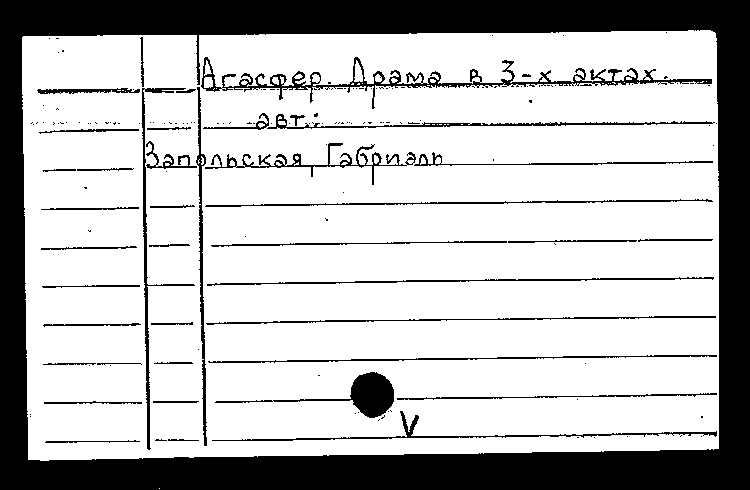 Агасфер. Драма в 3-х актах.
авт.:
Запольская, Габриэль
V